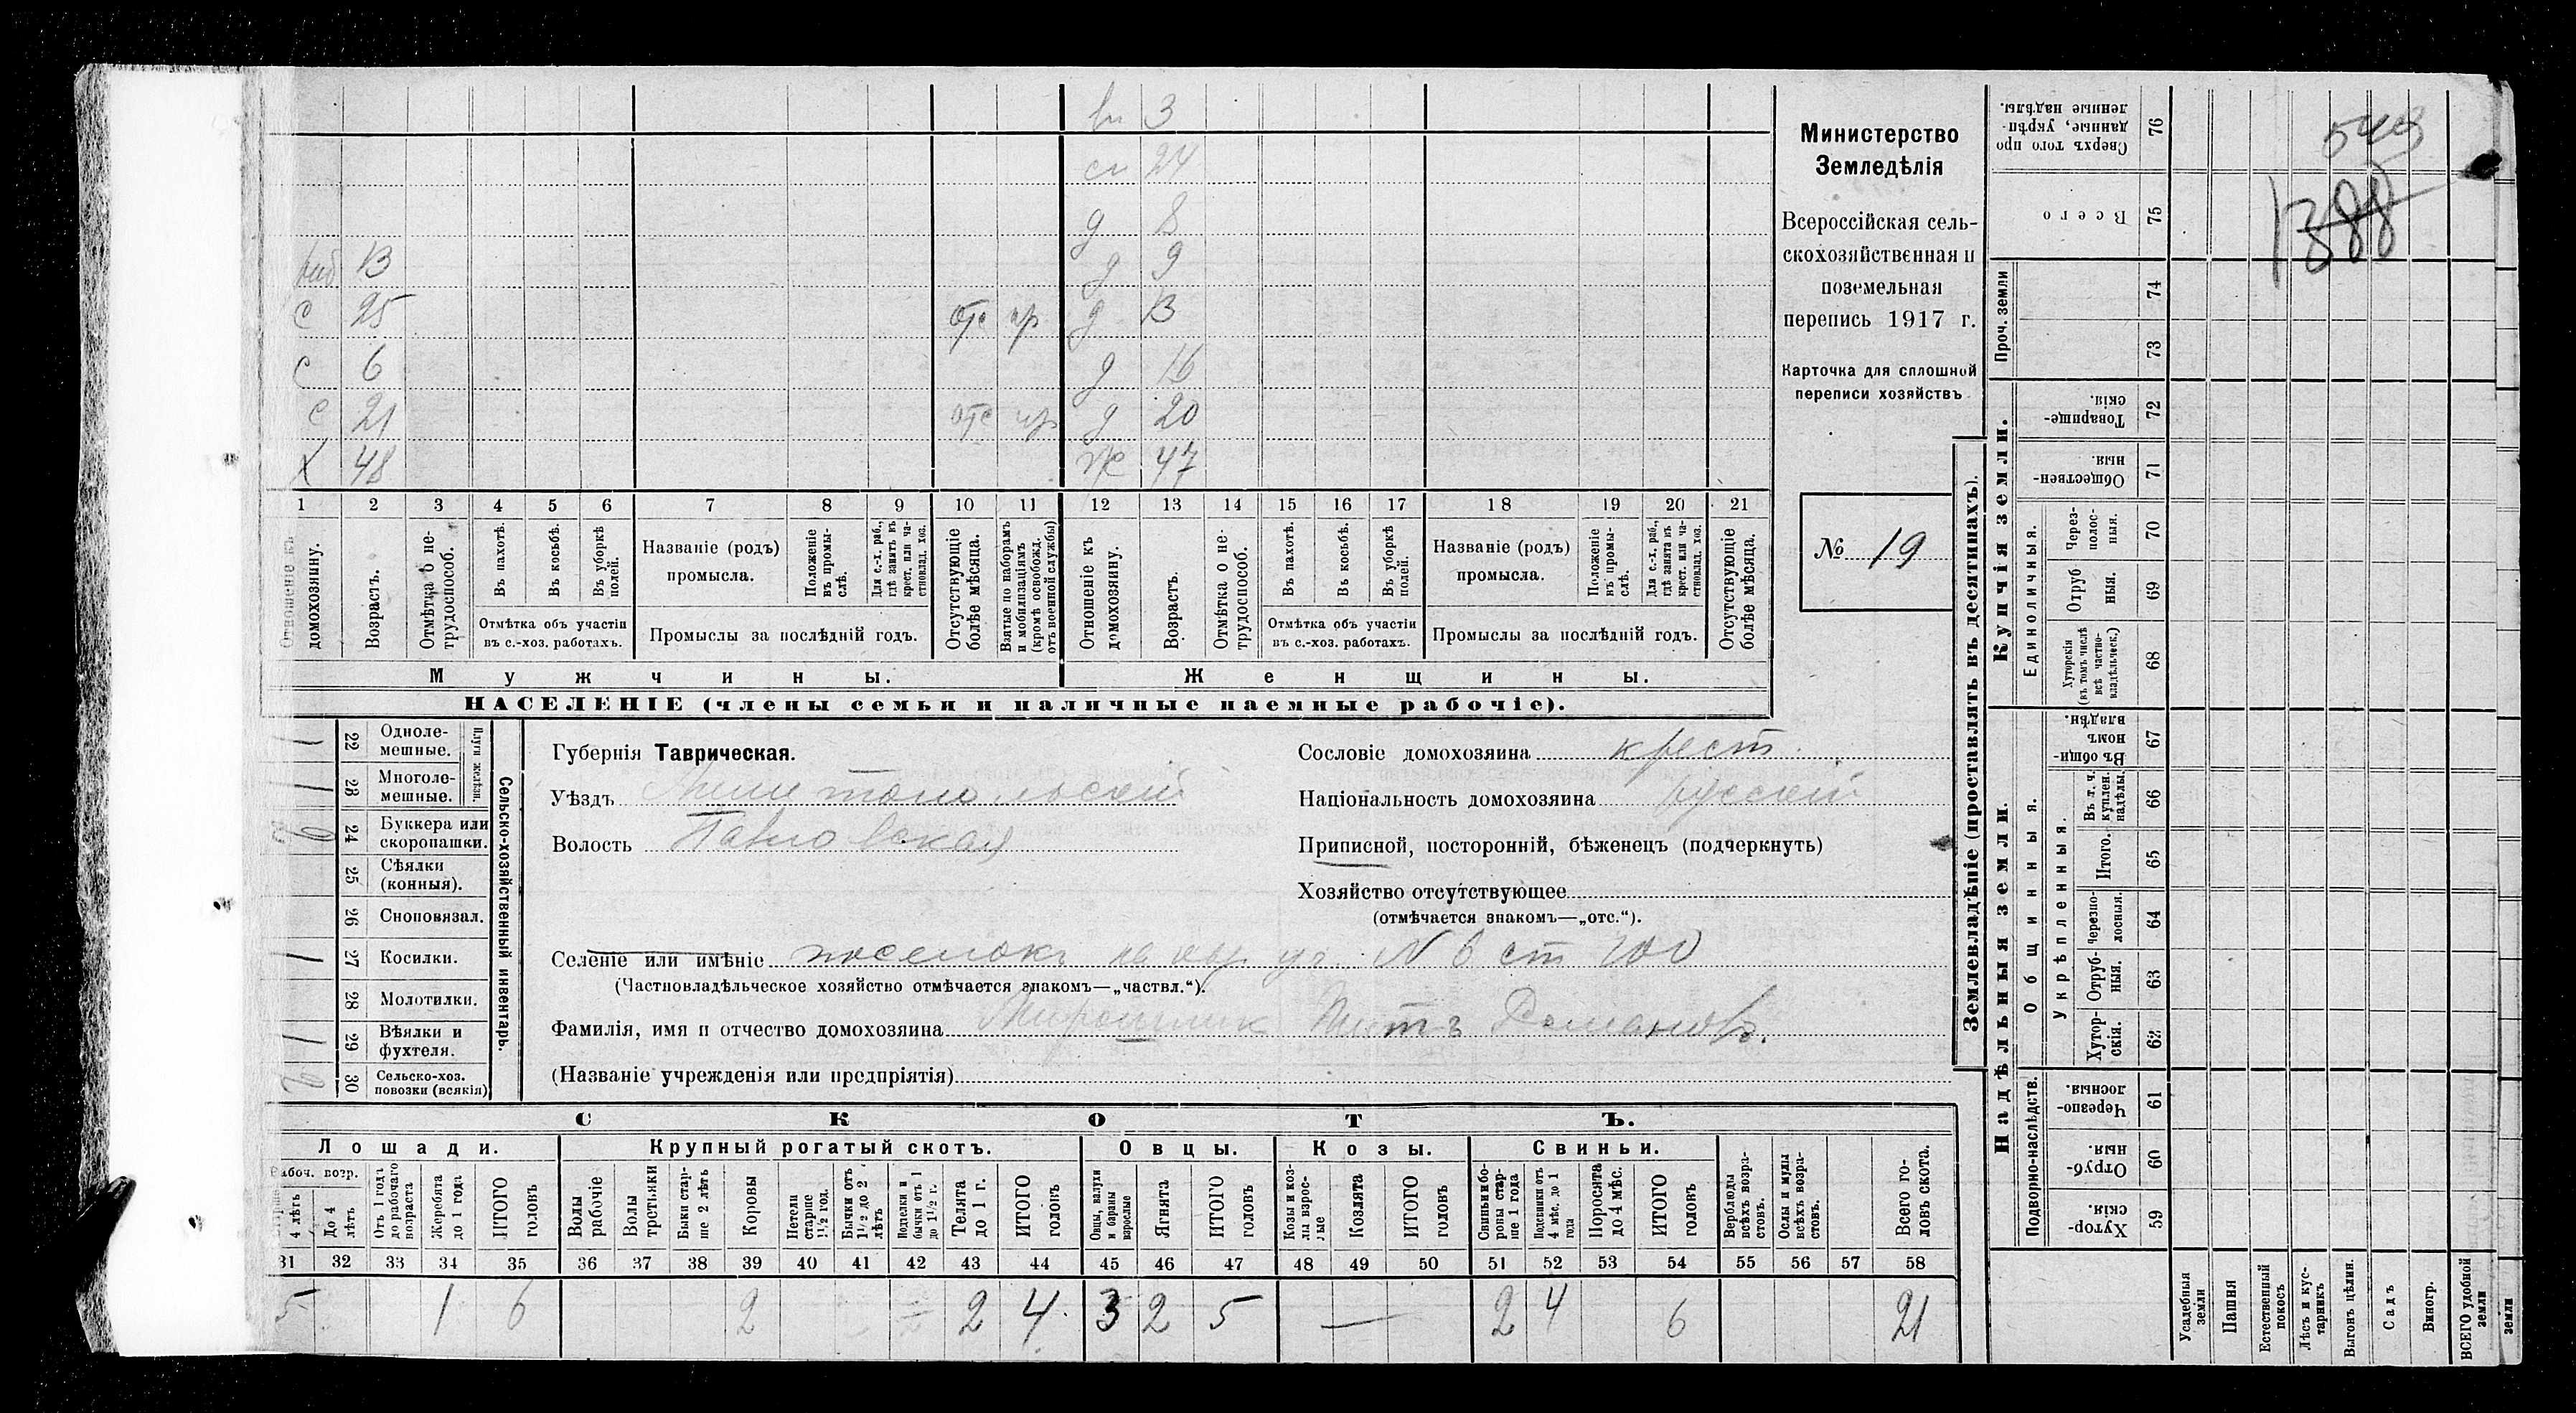 вн 3
сн 24
д 8
д 9
раб 13
с 25 отс пр д 13
с 6 д 16
с 21 отс пр д 20
Х 48 же 47
1 2 3 4 5 6 7 8 9 10 11 12 13 14 15 16 17 18 19 20 21
Отношеніе къ домохозяину.
Возрастъ.
Отмѣтка о нетрудоспособ.
Въ пахотѣ.
Въ косьбѣ.
Въ уборкѣ полей.
Отмѣтка объ участіи въ с.-хоз. работахъ.
Названіе (родъ) промысла.
Положеніе въ промыслѣ.
Для с.-х. раб., гдѣ занятъ въ крест. или частновлад. хоз.
Промыслы за послѣдній годъ.
Отсутствующіе болѣе мѣсяца.
Взятые по наборамъ и мобилизаціямъ (кромѣ освобожд. отъ военной службы)
Отношеніе къ домохозяину.
Возрастъ.
Отмѣтка о нетрудоспособ.
Въ пахотѣ.
Въ косьбѣ.
Въ уборкѣ полей.
Отмѣтка объ участіи въ с.-хоз. работахъ.
Названіе (родъ) промысла.
Положеніе въ промыслѣ.
Для с.-х. раб., гдѣ занята въ крест. или частновлад. хоз.
Промыслы за послѣдній годъ.
Отсутствующіе болѣе мѣсяца.
Мужчины.
Женщины.
НАСЕЛЕНІЕ (члены семьи и наличные наемные рабочіе).
Министерство
Земледѣлія
Всероссійская сель-
скохозяйственная и
поземельная
перепись 1917 г.
Карточка для сплошной
переписи хозяйствъ
№ 19
1 22 Одноле-мешные.
1 23 Многоле-мешные.
Плуги желѣзн.
24 Буккера или скоропашки.
25 Сѣялки (конныя).
26 Сноповязал.
1 27 Косилки.
28 Молотилки.
1 29 Вѣялки и фухтеля.
2 30 Сельско-хоз. повозки (всякія)
Сельско-хозяйственный инвентарь.
Губернія Таврическая.
Уѣздъ Мелитопольскій
Волость Павловская
Сословіе домохозяина крест.
Національность домохозяина русскій
Приписной, посторонній, бѣженецъ (подчеркнуть)
Хозяйство отсутствующее
(отмѣчается знакомъ—„отс.“).
Селеніе или имѣніе поселокъ на уч. N 6 ст
(Частновладѣльческое хозяйство отмѣчается знакомъ—„частвл.“).
Фамилія, имя и отчество домохозяина Мирошник Титъ Романовъ.
(Названіе учрежденія или предпріятія)
СКОТЪ.
Лошади.
Крупный рогатый скотъ.
Овцы.
Козы.
Свиньи.
Рабоч. возр.
4 лѣтъ
До 4 лѣтъ
Отъ 1 года до рабочаго возраста
Жеребята до 1 года
ИТОГО головъ
Волы рабочіе
Волы третьяки
Быки старше 2 лѣтъ
Коровы
Нетели старше 1½ год.
Бычки отъ 1½ до 2 лѣтъ
Подтелки и бычки отъ 1 до 1½ г.
Телята до 1 г.
ИТОГО головъ
Овцы, валухи и бараны взрослые
Ягнята
ИТОГО головъ
Козы и козлы взрослые
Козлята
ИТОГО головъ
Свиньи и боровы старше 1 года
Подсвинки отъ 4 мѣс. до 1 года
Поросята до 4 мѣс.
ИТОГО головъ
Верблюды всѣхъ возрастовъ.
Ослы и мулы всѣхъ возрастовъ.
Всего головъ скота.
31 32 33 34 35 36 37 38 39 40 41 42 43 44 45 46 47 48 49 50 51 52 53 54 55 56 57 58
5 1 6 2 2 4 3 2 5 — 2 4 6 21
Землевладѣніе (проставлять въ десятинахъ).
Купчія земли.
Надѣльныя земли.
Сверхъ того проданные, укрѣпленные надѣлы. 76
Всего 75
Проч. земли 74
73
Товарищескія. 72
Общественныя. 71
Единоличныя.
Черезполосныя. 70
Отрубныя. 69
Хуторскія (въ томъ числѣ всѣ частновладѣльческ.) 68
Общинныя.
Въ общинномъ владѣн. 67
Укрѣпленныя.
Въ т. ч. куплен. надѣлы. 66
Итого. 65
Черезполосныя. 64
Отрубныя. 63
Хуторскія. 62
Подворно-наслѣдств.
Черезполосныя. 61
Отрубныя. 60
Хуторскія. 59
Усадебныя земли
Пашня
Естественный покосъ
Лѣсъ и кустарникъ
Выгонъ цѣлин.
Садъ
Виногр.
ВСЕГО удобной земли
земли
1388